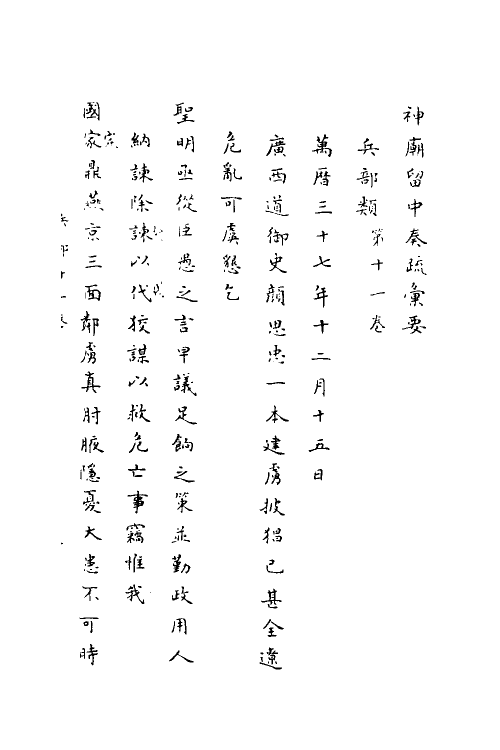 神廟留中奏疏彙要
兵部類第十一卷
萬曆三十七年十二月十五日
廣西道御史顏思忠一本建虜披猖已甚全遼
危亂可虞懇乞
聖明亟從臣愚之言早議足餉之策並勤政用人
納諫除諫以代狡謀以救危亡事竊惟我
國家鼎燕京三面鄰虜真肘腋隱憂大患不可時